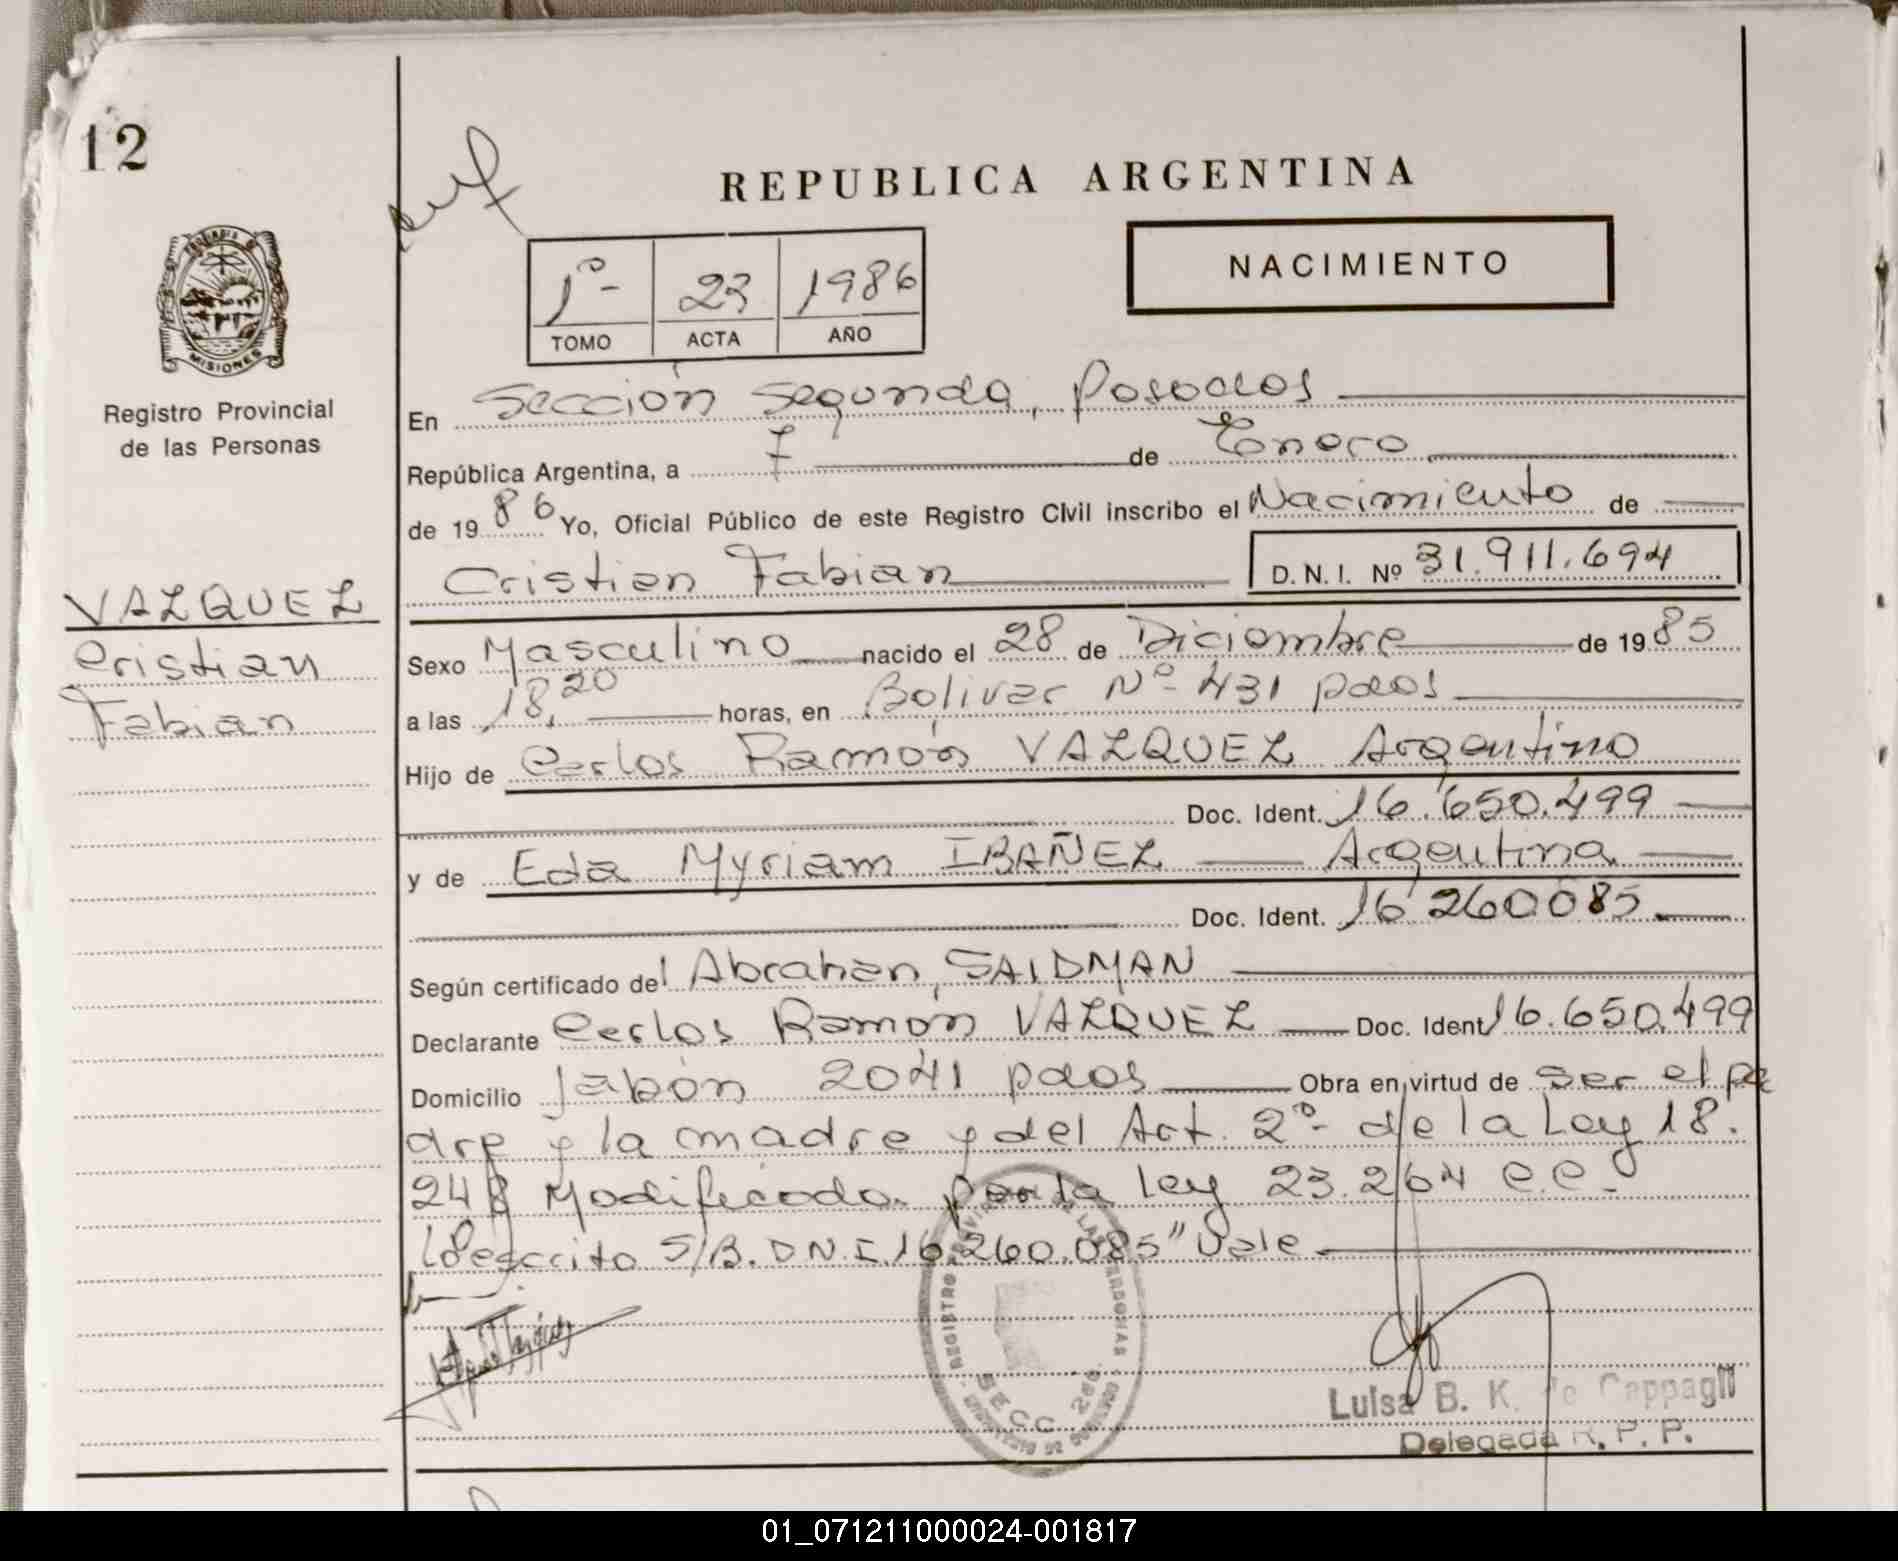 12
REPUBLICA ARGENTINA
NACIMIENTO
1º- 23 1986
TOMO ACTA AÑO
MISIONES
Registro Provincial
de las Personas
En Sección Segunda, Posadas
República Argentina, a 7 de Enero
de 1986 Yo, Oficial Público de este Registro Civil inscribo el Nacimiento de
Cristian Fabian D. N. I. Nº 31.911.694
VAZQUEZ
Cristian
Fabian
Sexo Masculino nacido el 28 de Diciembre de 1985
a las 18,20 horas, en Bolivar Nº 431 pdas
Hijo de Carlos Ramón VAZQUEZ Argentino
Doc. Ident. 16.650.499
y de Eda Myriam IBAÑEZ Argentina
Doc. Ident. 16.260.085
Según certificado del Abrahan, SAIDMAN
Declarante Carlos Ramón VAZQUEZ Doc. Ident 16.650.499
Domicilio Jabón 2041 pdas Obra en virtud de ser el pa
dre y la madre y del Art. 2º- de la Ley 18.
248 Modificado por la Ley 23.264 C.C.-
S/B. D.N.I. 16.260.085" Vale
REGISTRO PROVINCIAL DE LAS PERSONAS
SECC. 2da.
Luisa B. K. de Cappagli
Delegada R. P. P.
01_071211000024-001817